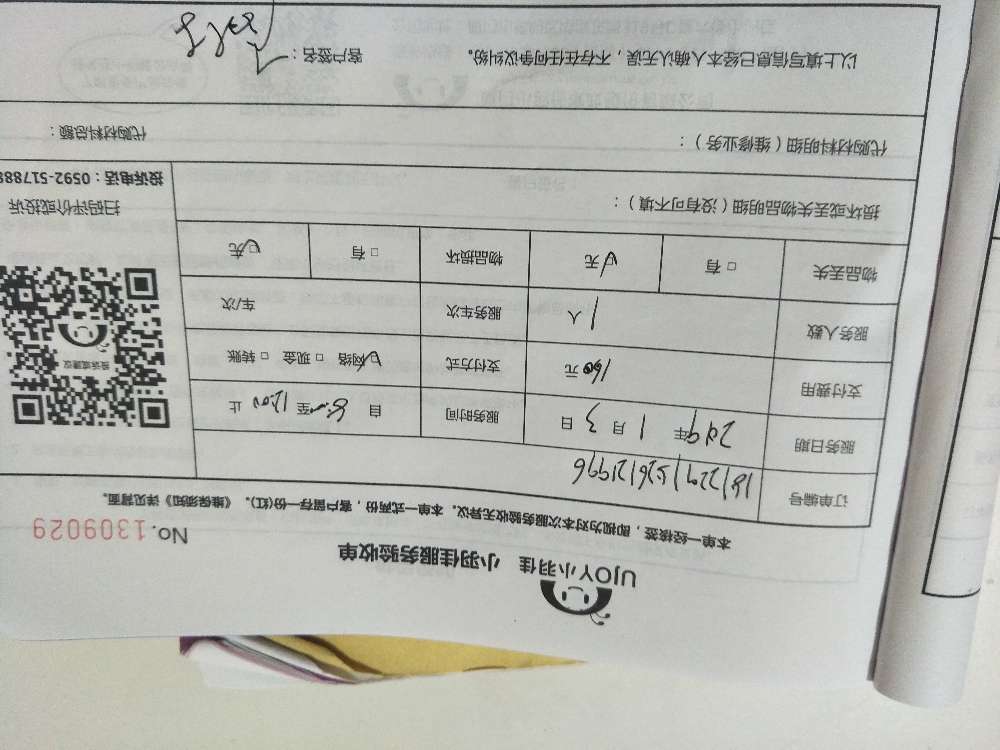 UJOY小羽佳 小羽佳服务验收单
No.1309029
本单一经核签，即视为对本次服务验收无异议。本单一式两份，客户留存一份(红)。《维保须知》详见背面。
订单编号
服务日期 2019年 1 月 3 日 服务时间 自 8: 至 12:00 止
支付费用 160 元 支付方式 ☑网络 □现金 □转账
服务人数 1 人 服务车次 车/次
物品丢失 □有 ☑无 物品损坏 □有 ☑无
扫码评价或投诉
投诉电话：0592-517888
损坏或丢失物品明细（没有可不填）：
代购材料明细（维修业务）： 代购材料总额：
以上填写信息已经本人确认无误，不存在任何争议纠纷。 客户签名：